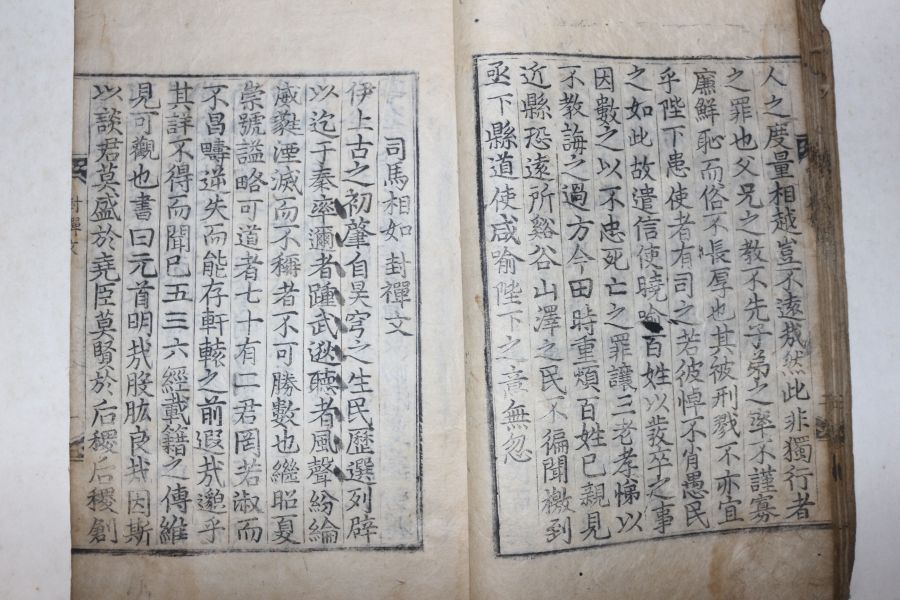 人之度量相越豈不遠哉然此非獨行者
之罪也父兄之教不先子弟之率不謹寡
廉鮮恥而俗不長厚也其被刑戮不亦宜
乎陛下患使者有司之若彼悼不肖愚民
之如此故遣信使曉喻百姓以發卒之事
因數之以不忠死亡之罪讓三老孝悌以
不教誨之過方今田時重煩百姓已親見
近縣恐遠所谿谷山澤之民不徧聞檄到
亟下縣道使咸喻陛下之意無忽
司馬相如封禪文
伊上古之初肇自昊穹之生民歷選列辟
以迄于秦率邇者踵武逖聽者風聲紛綸
威蕤湮滅而不稱者不可勝數也繼昭夏
崇號諡略可道者七十有二君罔若淑而
不昌疇逆失而能存軒轅之前遐哉邈乎
其詳不得而聞已五三六經載籍之傳維
見可觀也書曰元首明哉股肱良哉因斯
以談君莫盛於堯臣莫賢於后稷后稷創
封禪文